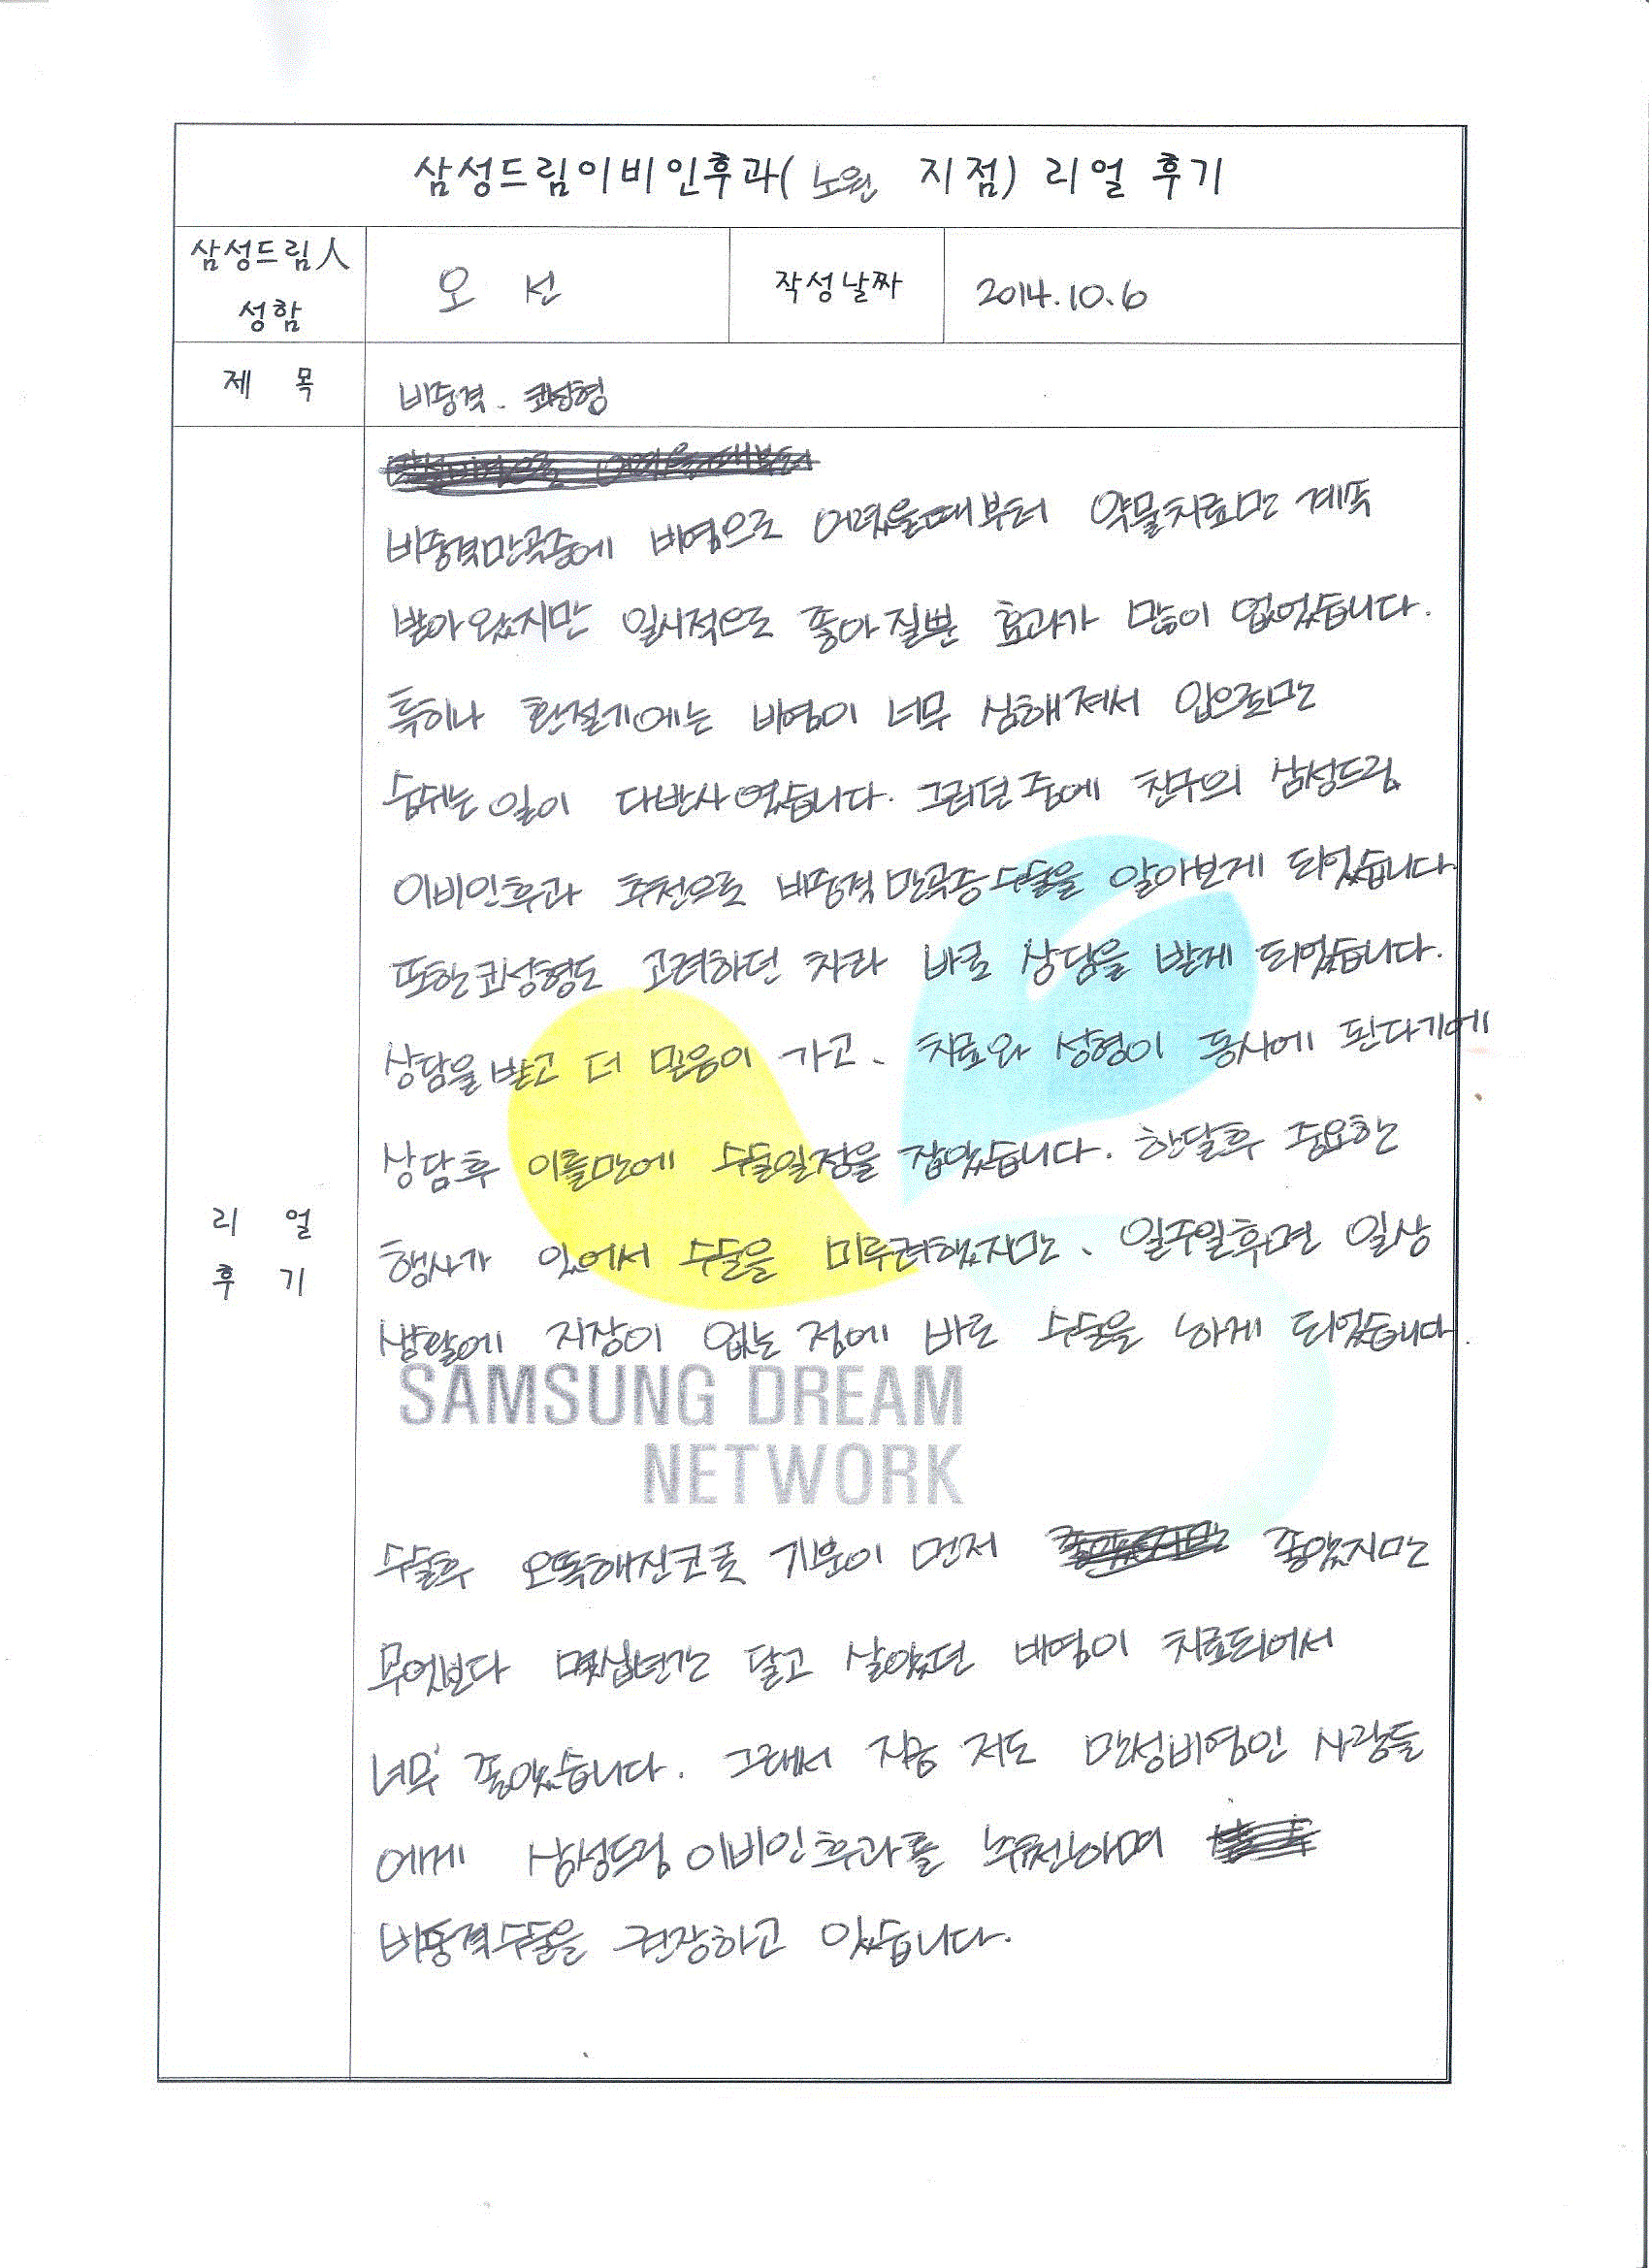 삼성드림이비인후과( 노원 지점) 리얼 후기
삼성드림人
성함
오 선
작성날짜
2014.10.6
제 목
비중격. 코성형
비중격만곡증에 비염으로 어렸을때부터 약물치료만 계속
받아왔지만 일시적으로 좋아질뿐 효과가 많이 없었습니다.
특히나 환절기에는 비염이 너무 심해져서 입으로만
숨쉬는 일이 다반사였습니다. 그러던 중에 친구의 삼성드림
이비인후과 추천으로 비중격만곡증수술을 알아보게 되었습니다.
또한 코성형도 고려하던 차라 바로 상담을 받게 되었습니다.
상담을 받고 더 믿음이 가고, 치료와 성형이 동시에 된다기에
상담후 이틀만에 수술일정을 잡았습니다. 한달후 중요한
행사가 있어서 수술을 미루려했지만, 일주일후면 일상
생활에 지장이 없는 점에 바로 수술을 하게 되었습니다.
SAMSUNG DREAM
NETWORK
리 얼
후 기
수술후 오똑해진코로 기분이 먼저 좋았지만
무엇보다 몇십년간 달고 살았던 비염이 치료되어서
너무 좋았습니다. 그래서 지금 저도 만성비염인 사람들
에게 삼성드림 이비인후과를 추천하며
비중격수술을 권장하고 있습니다.